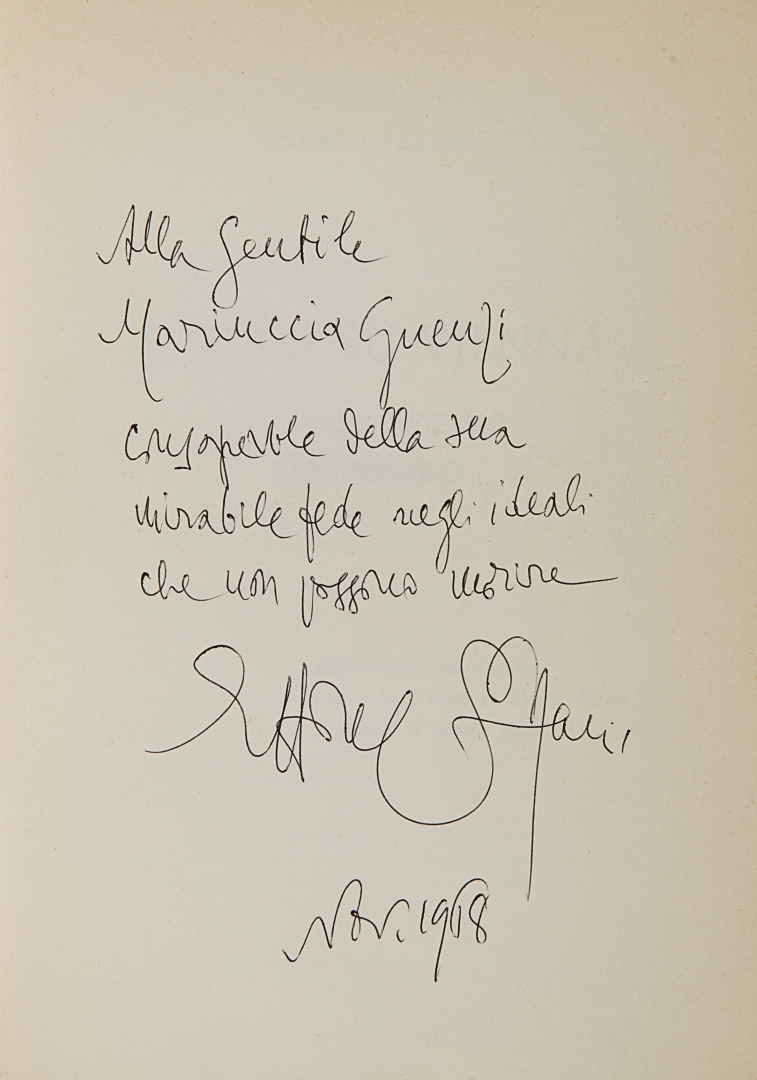 Alla Gentile
Mariuccia Guenzi
consapevole della sua
mirabile fede negli ideali
che non possono morire
Ettore
Nov. 1968